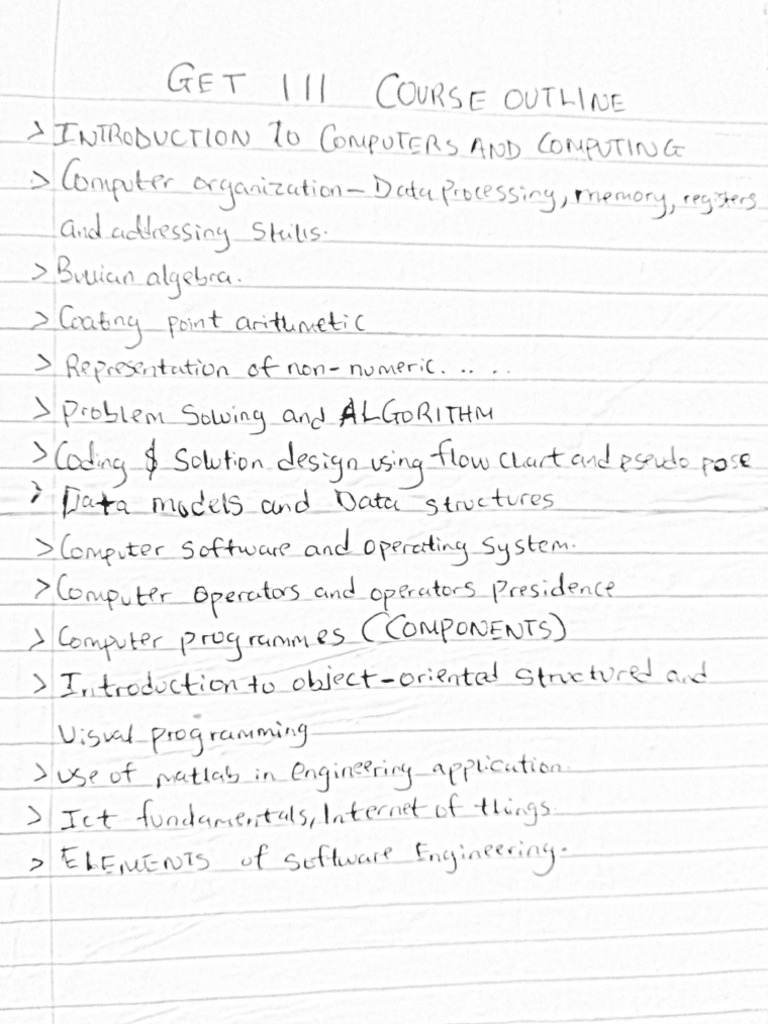 GET 111 COURSE OUTLINE
> INTRODUCTION TO COMPUTERS AND COMPUTING
> Computer organization - Data processing, memory, registers
and addressing Skills.
> Bulian algebra.
> Coating point arithmetic
> Representation of non-numeric. .. . .
> Problem Solving and ALGORITHM
> Coding & Solution design using flow chart and pseudo pose
> Data models and Data structures
> Computer software and operating system.
> Computer operators and operators presidence
> Computer programmes (COMPONENTS)
> Introduction to object-oriented structured and
visual programming
> use of matlab in engineering application.
> Ict fundamentals, Internet of things.
> ELEMENTS of software Engineering.